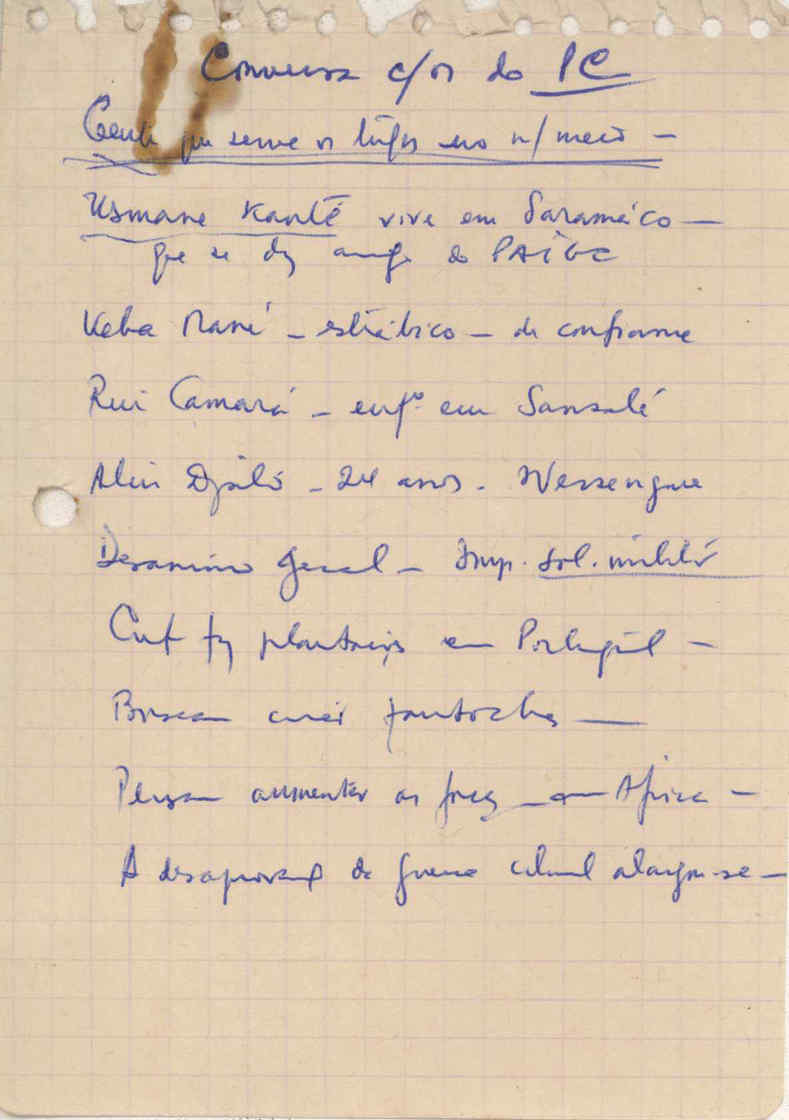 Conversa c/os do PC
Gente que serve os tugas no n/ meio —
Usmane Kanté vive em Saraméco —
que se diz amigo do PAIGC
Keba Mané — estrábico — de confiance
Rui Camará — enfº em Sansalé
Aliu Djaló — 24 anos. Wessengue
Desanimo geral — Imp. sol. militar
em Portugal —
Buscam criar fantoches —
Pensam aumentar as forças — em Africa —
A desaprovação da guerra colonial alarga-se —